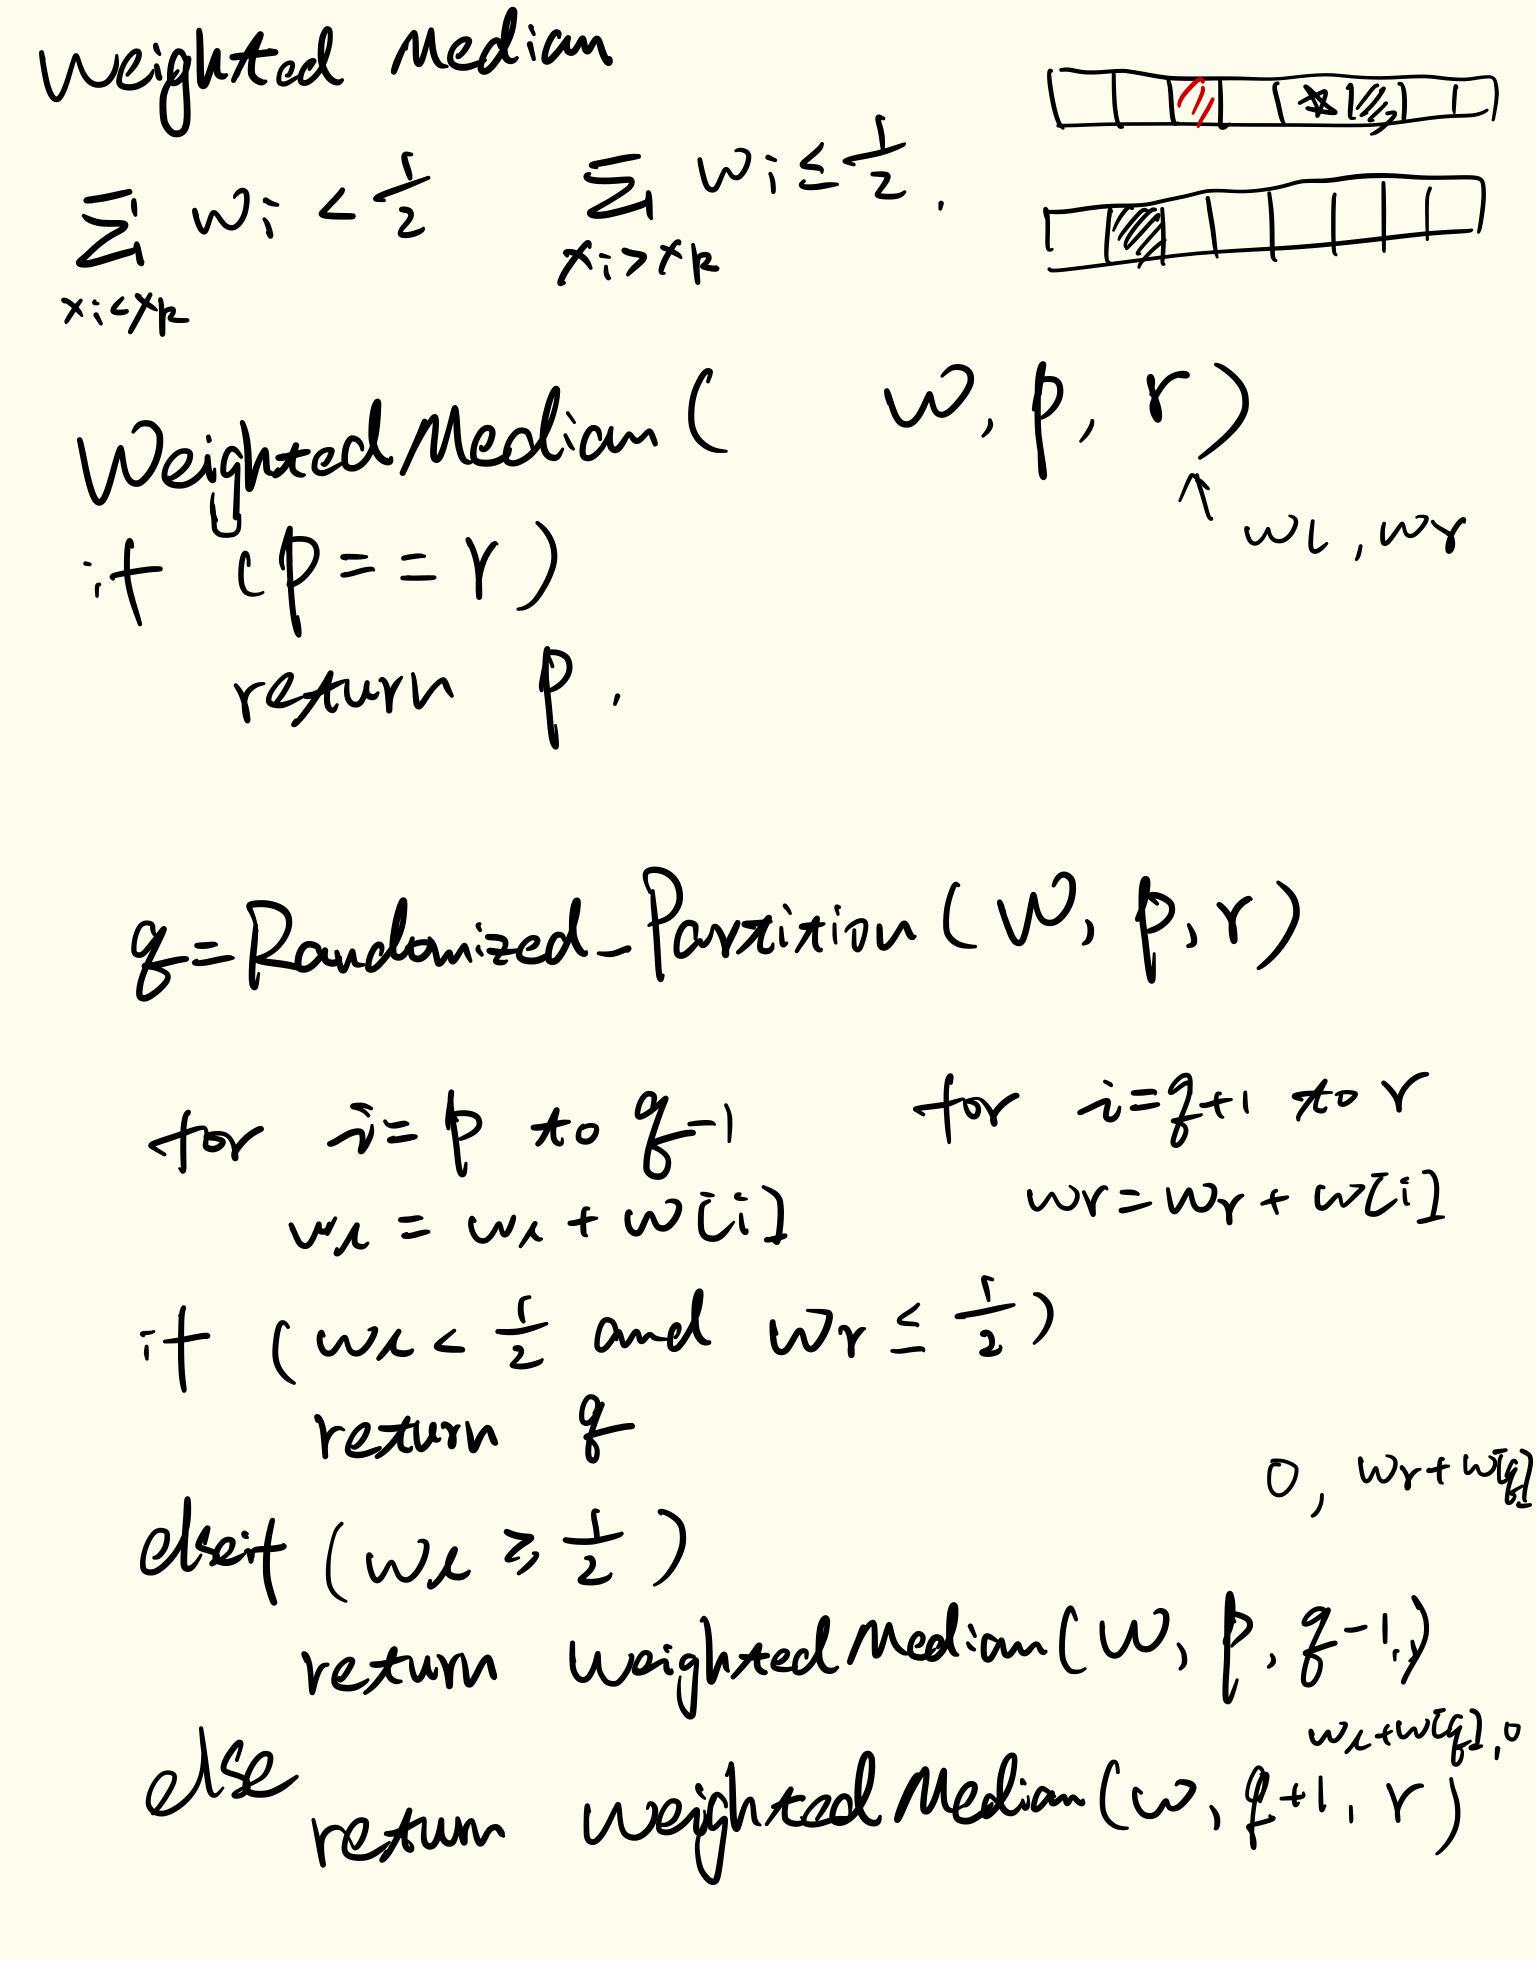 Weighted Median
∑ wi < 1/2    ∑ wi ≤ 1/2.
xi<xk    xi>xk
WeightedMedian(    W, p, r)
↑ wl, wr
if (p==r)
return p.
q=Randomized_Partition(W, p, r)
for i=p to q-1    for i=q+1 to r
wl = wl + w[i]    wr=wr+w[i]
if (wl < 1/2 and wr ≤ 1/2)
return q
0, wr+w[q]
elseif (wl ≥ 1/2)
return WeightedMedian(W, p, q-1,)
wl+w[q],0
else
return WeightedMedian(w, q+1, r)